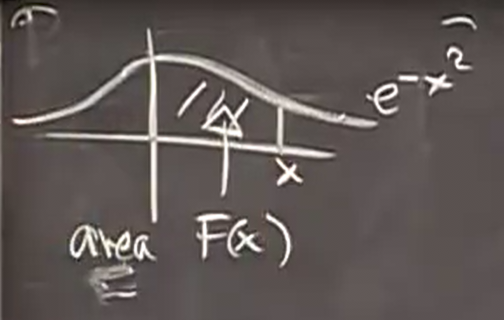 e^{-x^2}
x
area F(x)